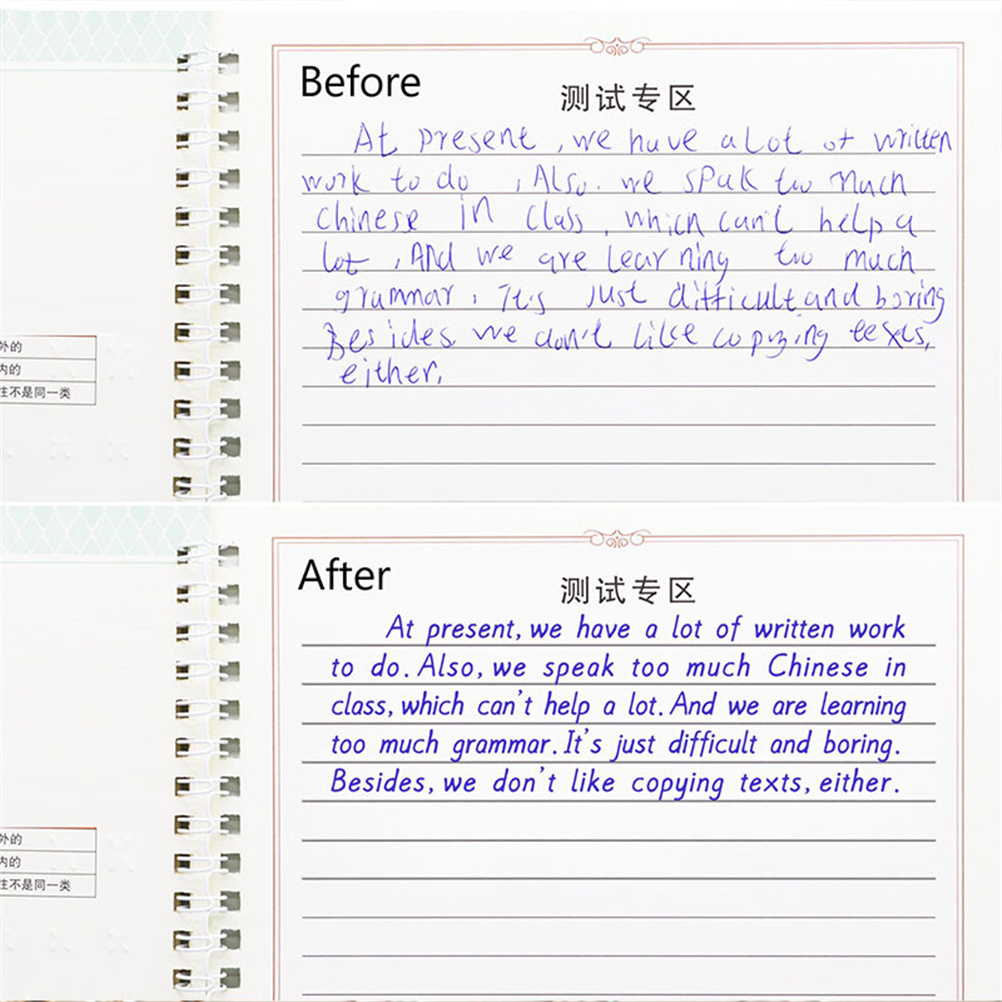 Before
测试专区
At present, we have a lot of written
work to do , Also. we spak too much
chinese in class, which can't help a
lot , And we are learning too much
grammar, It's just difficult and boring
Besides we don't like copying texts,
either,
外的
内的
住不是同一类
After
测试专区
At present, we have a lot of written work
to do. Also, we speak too much Chinese in
class, which can't help a lot. And we are learning
too much grammar. It's just difficult and boring.
Besides, we don't like copying texts, either.
外的
内的
住不是同一类